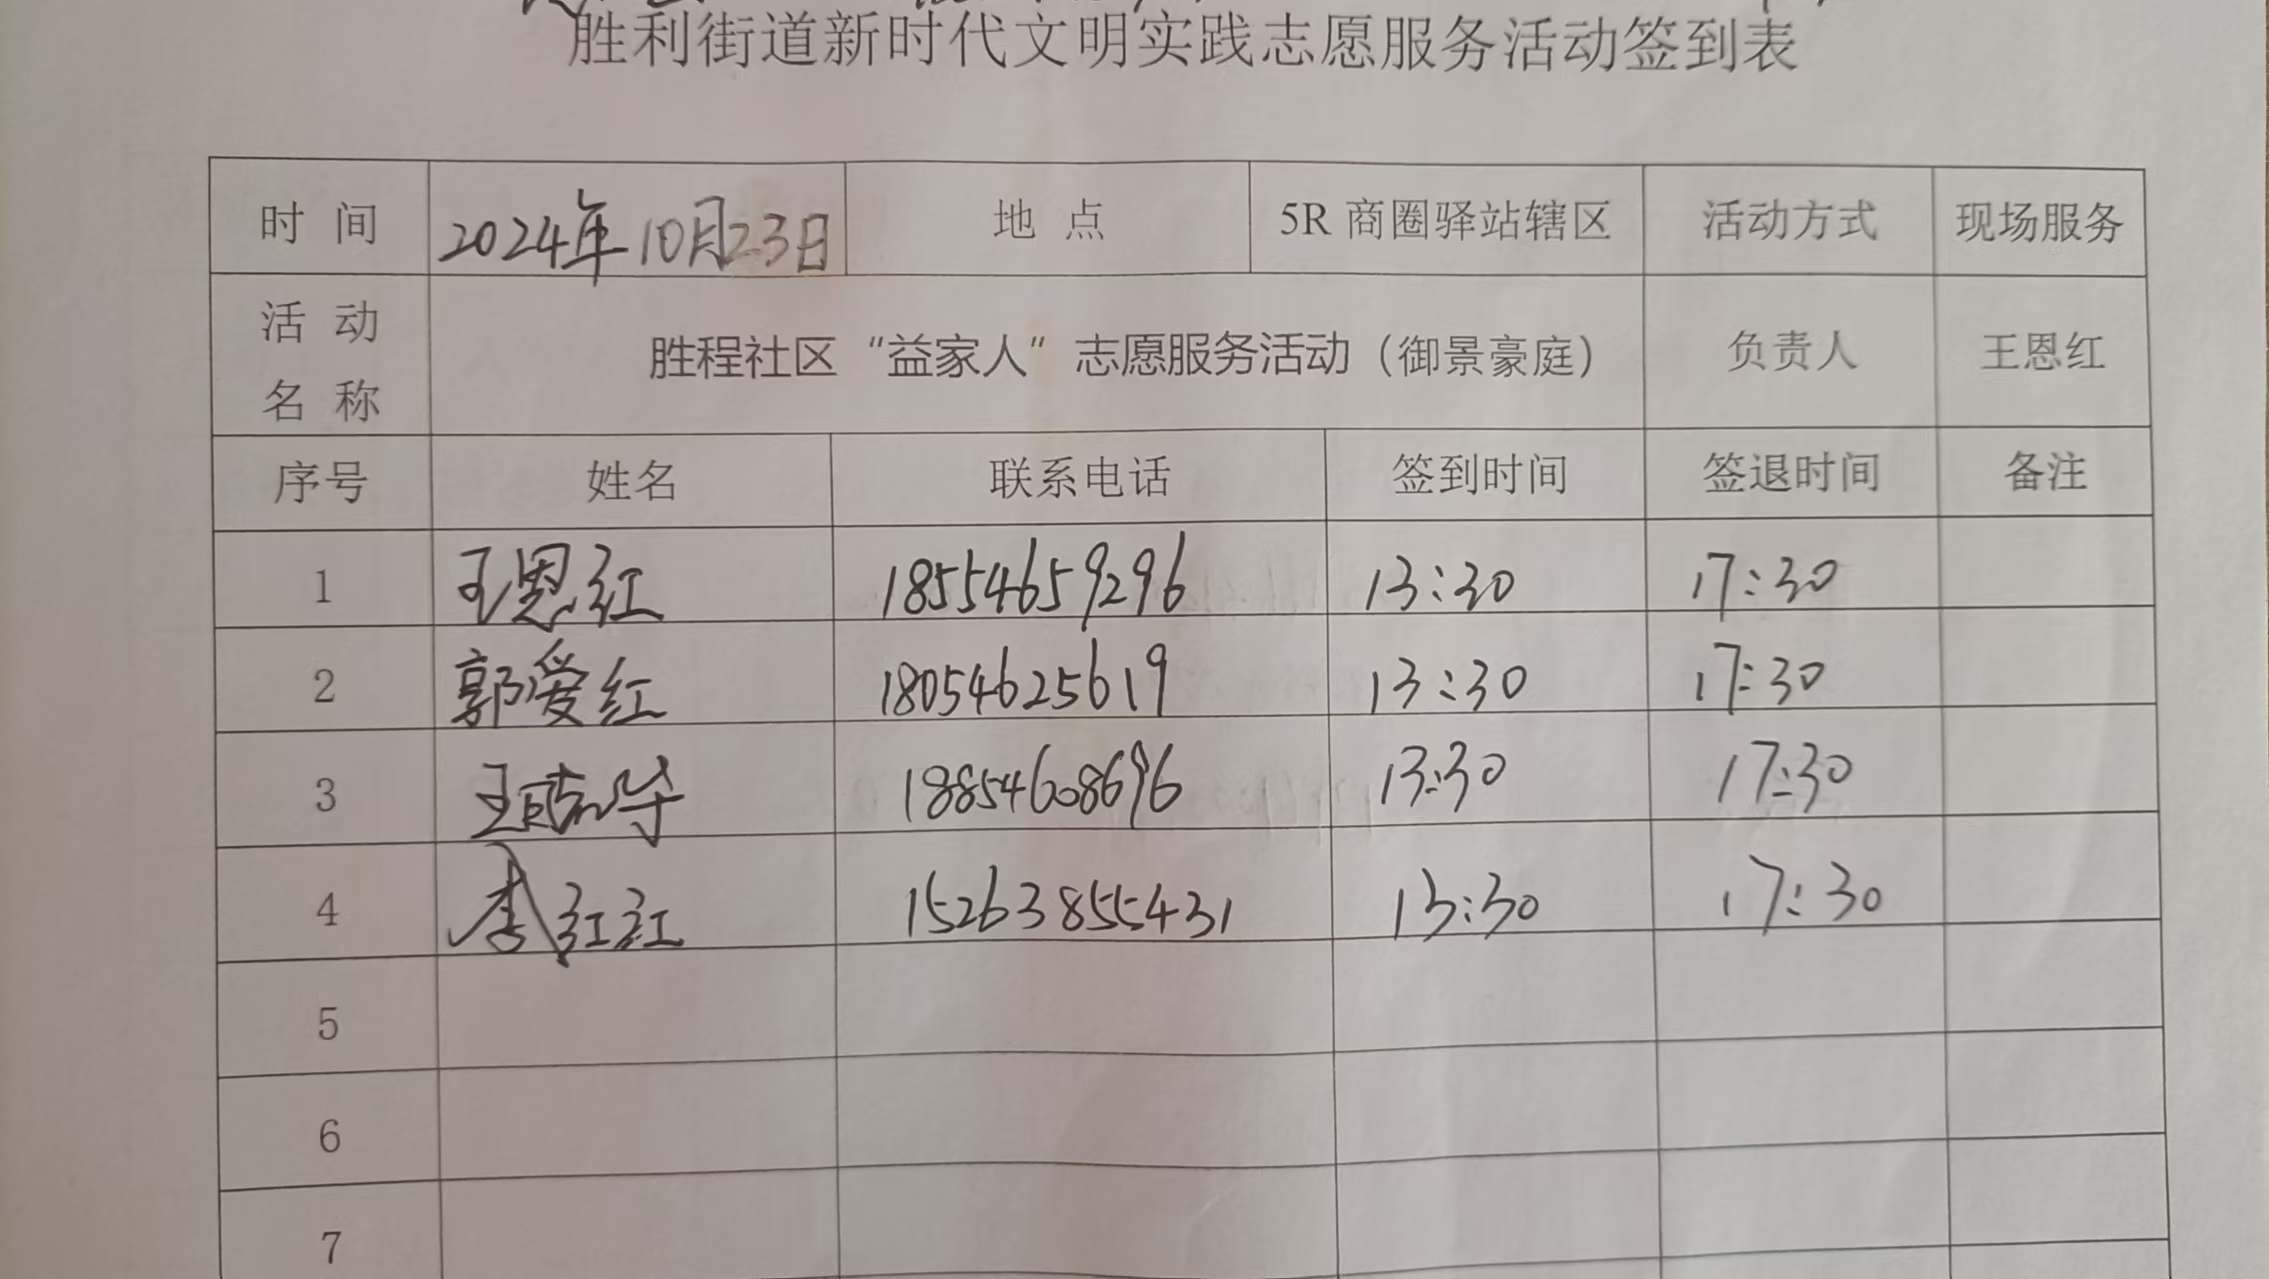 胜利街道新时代文明实践志愿服务活动签到表
时 间 2024年10月23日 地 点 5R 商圈驿站辖区 活动方式 现场服务
活 动 名 称 胜程社区“益家人”志愿服务活动（御景豪庭） 负责人 王恩红
序号 姓名 联系电话 签到时间 签退时间 备注
1 王恩红 18554659296 13:30 17:30
2 郭爱红 18054625619 13:30 17:30
3 王 18854608696 13:30 17:30
4 李红红 15263855431 13:30 17:30
5
6
7